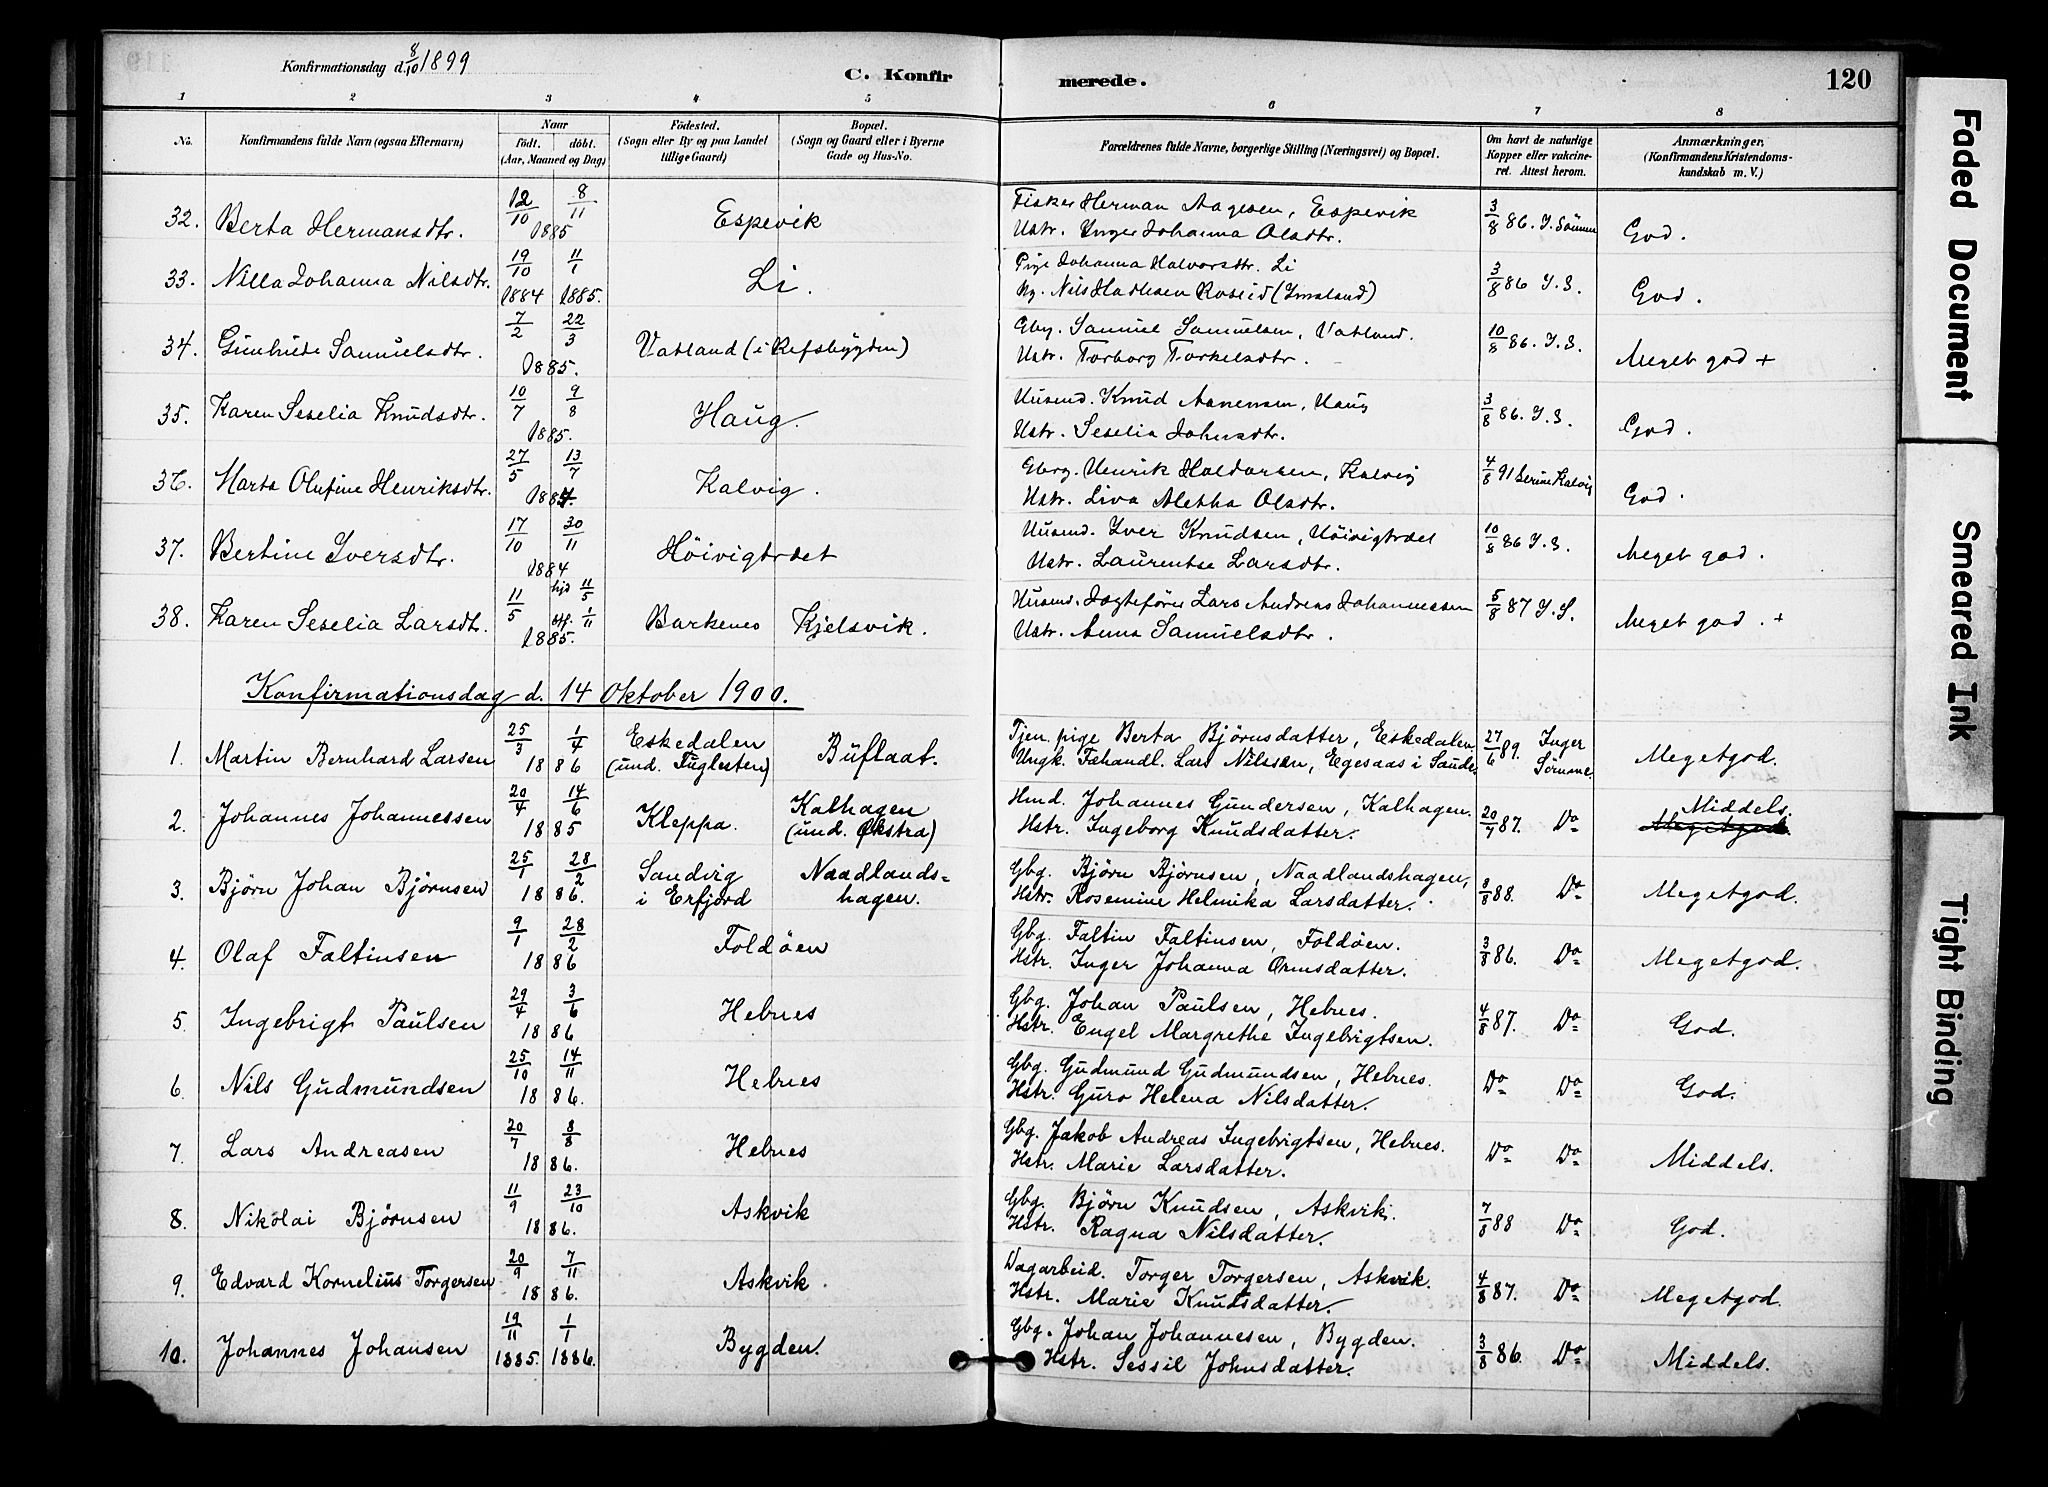 Konfirmationsdag d. 8/10 1899
C. Konfirmerede.
120
1 2 3 4 5 6 7 8
No.
Konfirmandens fulde Navn (ogsaa Efternavn)
Naar
födt. döbt.
(Aar, Maaned og Dag)
Födested.
(Sogn eller By og paa Landet
tillige Gaard)
Bopæl.
(Sogn og Gaard eller i Byerne
Gade og Hus-No.
Forældrenes fulde Navne, borgerlige Stilling (Næringsvei) og Bopæl.
Om havt de naturlige
Kopper eller vakcine-
ret. Attest herom.
Anmærkninger,
(Konfirmandens Kristendoms-
kundskab m. V.)
32. Berta Hermansdtr. 12/10 8/11 1885 Espevik Fisker Herman Aagesen, Espevik
Hstr. Inger Johanna Olsdtr. 3/8 86. I. Sömme God.
33. Nilla Johanna Nilsdtr. 19/10 1884 11/1 1885. Li. Pige Johanna Halvorsdtr. Li
Ug. Nils 3/8 86 I. S. God.
34. Samuelsdtr. 7/2 22/3 1885. Vatland (i Refsbygden) Gbg. Samuel Samuelsen, Vatland.
Hstr. Torborg Torkelsdtr. 10/8 86. I. S. Meget god +
35. Karen Seselia Knudsdtr. 10/7 9/8 1885. Haug. Husmd. Knud Aanensen, Haug
Hstr. Seselia Johnsdtr. 3/8 86. I. S. God.
36. Marta Olufine Henriksdtr. 27/5 13/7 1884. Kalvig. Gbrg. Henrik Haldorsen, Kalvig
Hstr. Liva Aletha Olsdtr. 4/8 91 Serine Kalvig God.
37. Bertine Iversdtr. 17/10 30/11 1884 Höivigtrædet Husmd. Iver Knudsen, Höivigtrædet
Hstr. Laurentse Larsdtr. 10/8 86 I. S. Meget god.
38. Karen Seselia Larsdtr. 11/5 hjd 11/5 stf. 1/11 1885. Barkenes Kjelsvik. Husmd. Jagtefører Lars Andreas Johannessen
Hstr. Anna Samuelsdtr. 5/8 87 I. S. Meget god. +
Konfirmationsdag d. 14 Oktober 1900.
1. Martin Bernhard Larsen 25/3 1/4 1886 Eskedalen
(und. Fuglesten) Buflaat. Tjen. pige Berta Bjørnsdatter, Eskedalen.
Ungk. Fæhandl. Lars Nilssen, Egesaas i Saude. 27/6 89. Inger
Sömme. Megetgod.
2. Johannes Johannessen 20/4 14/6 1885 Kleppa. Kalhagen
(und. Økstra) Hmd. Johannes Gundersen, Kalhagen.
Hstr. Ingeborg Knudsdatter. 20/7 87. Do Middels.
Megetgod.
3. Bjørn Johan Bjørnsen 25/1 28/2 1886. Sandvig
i Erfjord Naadlands=
hagen. Gbg. Bjørn Bjørnsen, Naadlandshagen,
Hstr. Rosemine Helmika Larsdatter. 8/8 88. Do Megetgod.
4. Olaf Faltinsen 9/1 28/2 1886 Foldöen Gbg. Faltin Faltinsen, Foldöen.
Hstr. Inger Johanna Ormsdatter. 3/8 86. Do Megetgod.
5. Ingebrigt Paulsen 29/4 3/6 1886 Hebnes Gbg. Johan Paulsen, Hebnes.
Hstr. Engel Margrethe Ingebrigtsen. 4/8 87. Do God.
6. Nils Gudmundsen 25/10 14/11 1886. Hebnes Gbg. Gudmund Gudmundsen, Hebnes.
Hstr. Guro Helena Nilsdatter. Do Do God.
7. Lars Andreasen 20/7 8/8 1886. Hebnes Gbg. Jakob Andreas Ingebrigtsen, Hebnes.
Hstr. Marie Larsdatter. Do Do Middels.
8. Nikolai Bjørnsen 11/9 23/10 1886. Askvik Gbg. Bjørn Knudsen, Askvik.
Hstr. Ragna Nilsdatter. 7/8 88 Do God.
9. Edvard Kornelius Torgersen 20/9 7/11 1886. Askvik. Dagarbeid. Torger Torgersen, Askvik.
Hstr. Marie Knudsdatter. 4/8 87. Do Megetgod.
10. Johannes Johansen 19/11 1885. 1/1 1886. Bygden. Gbg. Johan Johannesen, Bygden.
Hstr. Sessil Johnsdatter. 3/8 86. Do Middels.
Faded Document
Smeared Ink
Tight Binding